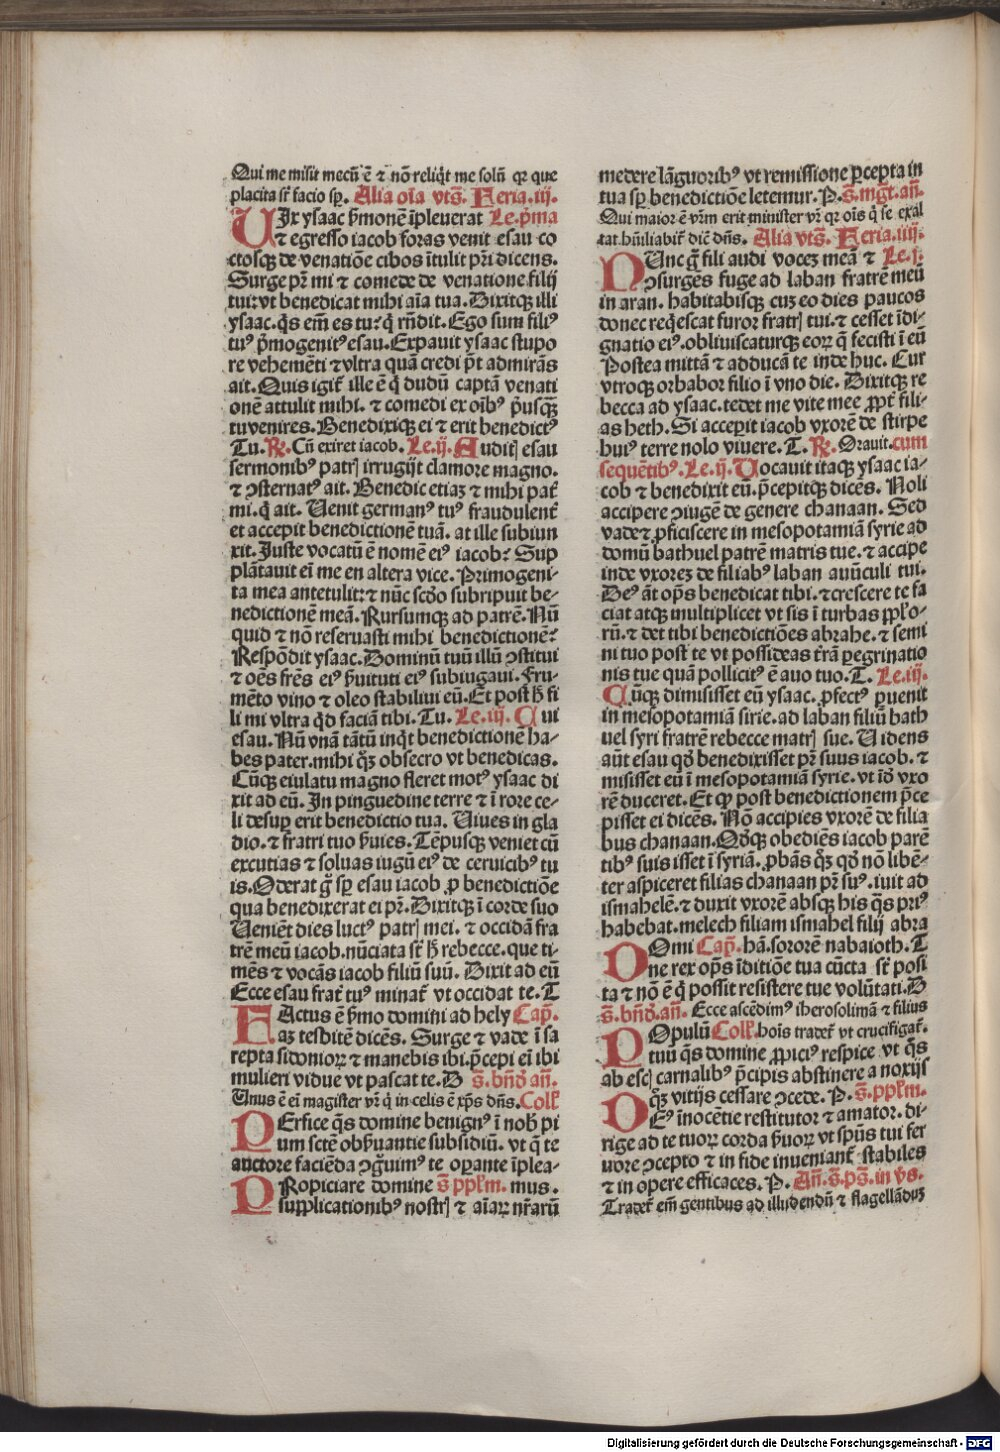 Qui me misit mecū ē ⁊ nō reliq̇t me solū qꝛ que
placita sr̄ facio sp̄. Alia oīa vts̄. Feria.iij.
VIr ysaac ṗmonē īpleuerat Le.p̄ma
⁊ egresso iacob foras venit esau co
ctosqꝫ de venatiōe cibos ītulit pr̄i dicens.
Surge pr̄ mi ⁊ comede de venatione filij
tui: vt benedicat mihi aīa tua. Dixitqꝫ illi
ysaac. q̇s em̄ es tu: q̇ rn̄dit. Ego sum filiꝰ
tuꝰ p̄mogenitꝰ esau. Expauit ysaac stupo
re vehemēti ⁊ vltra quā credi p̄t admirās
ait. Quis igit̄ ille ē q̇ dudū captā venati
onē attulit mihi. ⁊ comedi ex oībꝰ p̄usqꝫ̄
tu venires. Benedixiqꝫ ei ⁊ erit benedictꝰ
Tu. R. Cū exiret iacob. Le.ij. Auditꝭ esau
sermonibꝰ patrꝭ irrugijt clamore magno.
⁊ ↄsternatꝰ ait. Benedic etiaꝫ ⁊ mihi pat̄
mi. q̇ ait. Uenit germanꝰ tuꝰ fraudulent̄
et accepit benedictionē tuā. at ille subiun
xit. Juste vocatū ē nomē eiꝰ iacob: Sup
plātauit eī me en altera vice. Primogeni-
ta mea antetulit: ⁊ nūc scd̄o subripuit be-
nedictionē meā. Rursumqꝫ ad patrē. Nū
quid ⁊ nō reseruasti mihi benedictionē?
Respōdit ysaac. Dominū tuū illū ↄstitui
⁊ oēs fr̄es eiꝰ ṗuituti eiꝰ subiugaui. Fru-
mēto vino ⁊ oleo stabiliui eū. Et post h̄ fi
li mi vltra qd̄ faciā tibi. Tu. Le.iij. Cui
esau. Nū vnā tātū inq̇t benedictionē ha-
bes pater. mihi qꝫ̊ obsecro vt benedicas.
Cūqꝫ eiulatu magno fleret motꝰ ysaac di
xit ad eū. In pinguedine terre ⁊ ī rore ce-
li desuꝑ erit benedictio tua. Uiues in gla
dio. ⁊ fratri tuo ṗuies. Tēpusqꝫ veniet cū
excutias ⁊ soluas iugū eiꝰ de ceruicibꝰ tu
is. Oderat g̊ sp̄ esau iacob ꝓ benedictiōe
qua benedixerat ei pr̄. Dixitqꝫ ī corde suo
Ueniēt dies luctꝰ patrꝭ mei. ⁊ occidā fra
trē meū iacob. nūciata sr̄ h̄ rebecce. que ti-
mēs ⁊ vocās iacob filiū suū. Dixit ad eū
Ecce esau frat̄ tuꝰ minat̄ vt occidat te. T
FActus ē ṗmo domini ad hely Cap̄.
aꝫ tesbitē dicēs. Surge ⁊ vade ī sa
repta sidonioꝝ ⁊ manebis ibi. p̄cepi eī ibi
mulieri vidue vt pascat te. D s̄. bn̄d̄ an̄.
Unus ē eī magister vr̄ q̇ in celis ē xp̄s dn̄s. Coll'
PErfice q̄s domine benignꝰ ī nob̄ pi
um sctē obṗuantie subsidiū. vt q̄ te
auctore faciēda ↄgͦuimꝰ te oꝑante īplea-
PRopiciare domine s̄ ppl'm. mus.
supplicationibꝰ nostrꝭ ⁊ aīaꝝ nr̄arū
medere lāguoribꝰ vt remissione ꝑcepta in
tua sp̄ benedictiōe letemur. P. s̄. mgt̄. an̄.
Qui maior ē vr̄m erit minister vr̄ qꝛ oīs q̇ se exal
tat hūiliabit̄ dic̄ dn̄s. Alia vts̄. Feria.iiij.
NUnc g̊ fili audi voceꝫ meā ⁊ Le.j.
ↄsurgēs fuge ad laban fratrē meū
in aran. habitabisqꝫ cuꝫ eo dies paucos
donec req̇escat furor fratrꝭ tui. ⁊ cesset īdi-
gnatio eiꝰ. obliuiscaturqꝫ eoꝝ q̄ fecisti ī eū
Postea mittā ⁊ adducā te inde huc. Cur
vtroqꝫ orbabor filio ī vno die. Dixitqꝫ re
becca ad ysaac. tedet me vite mee ꝓpt̄ fili-
as heth. Si acceꝑit iacob vxorē de stirpe
huiꝰ terre nolo viuere. T. R. Orauit. cum
sequētibꝰ. Le.ij. Uocauit itaqꝫ ysaac ia-
cob ⁊ benedixit eū. p̄cepitqꝫ dicēs. Noli
accipere ↄiugē de genere chanaan. Sed
vade ⁊ ꝓficiscere in mesopotamiā syrie ad
domū bathuel patrē matris tue. ⁊ accipe
inde vxoreꝫ de filiabꝰ laban auūculi tui.
Deꝰ āt op̄s benedicat tibi. ⁊ crescere te fa
ciat atqꝫ multiplicet vt sis ī turbas ppl'o-
rū. ⁊ det tibi benedictiōes abrahe. ⁊ semi
ni tuo post te vt possideas tr̄ā ꝑegrinatio
nis tue quā pollicitꝰ ē auo tuo. T. Le.iij.
Cūqꝫ dimisisset eū ysaac. ꝓfectꝰ ꝑuenit
in mesopotamiā sirie. ad laban filiū bath
uel syri fratrē rebecce matrꝭ sue. Uidens
aūt esau qd̄ benedixisset pr̄ suus iacob. ⁊
misisset eū ī mesopotamiā syrie. vt īd̄ vxo
rē duceret. Et ꝙ post benedictionem p̄ce
pisset ei dicēs. Nō accipies vxorē de filia
bus chanaan. Qd̄qꝫ obediēs iacob parē
tibꝰ suis isset ī syriā. ꝓbās qꝫ̊ qd̄ nō libē-
ter aspiceret filias chanaan pr̄ suꝰ. iuit ad
ismahelē. ⁊ duxit vxorē absqꝫ his q̄s priꝰ
habebat. melech filiam ismahel filij abra
DOmi Cap̄. hā. sororē nabaioth. T
ne rex op̄s īditiōe tua cūcta sr̄ posi
ta ⁊ nō ē q̇ possit resistere tue volūtati. D
s̄. bn̄d̄. an̄. Ecce ascēdimꝰ iherosolimā ⁊ filius
POpulū Coll'. hoīs tradet̄ vt crucifigat̄.
tuū q̄s domine ꝓpiciꝰ respice vt q̇s
ab escꝭ carnalibꝰ p̄cipis abstinere a noxijs
qꝫ̊ vitijs cessare ↄcede. P. s̄. ppl'm.
DEꝰ inocētie restitutor ⁊ amator. di-
rige ad te tuoꝝ corda ṗuoꝝ vt spūs tui fer
uore ↄcepto ⁊ in fide inueniant̄ stabiles
⁊ in opere efficaces. P. An̄. s̄. ps̄. in vs̄.
Tradet̄ em̄ gentibus ad illudendū ⁊ flagellāduꝫ
Digitalisierung gefördert durch die Deutsche Forschungsgemeinschaft - DFG